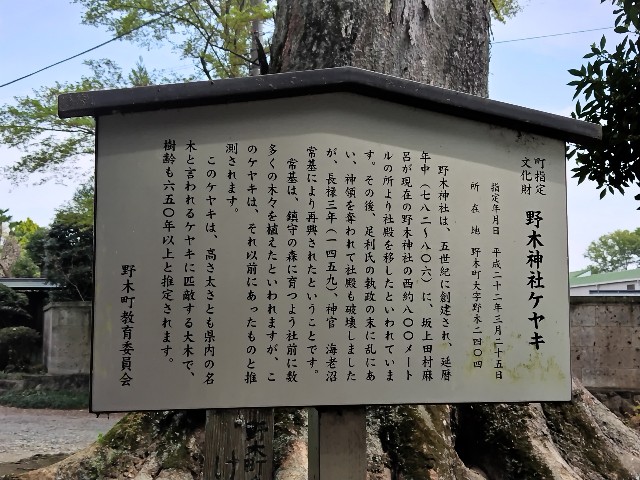 町指定
文化財
野木神社ケヤキ
指定年月日　平成二十二年三月二十五日
所在地　野木町大字野木二四〇四
野木神社は、五世紀に創建され、延暦
年中（七八二〜八〇六）に、坂上田村麻
呂が現在の野木神社の西約八〇〇メート
ルの所より社殿を移したといわれていま
す。その後、足利氏の執政の末に乱にあ
い、神領を奪われて社殿も破壊しました
が、長禄三年（一四五九）、神官　海老沼
常基により再興されたということです。
常基は、鎮守の森に育つよう社前に数
多くの木々を植えたといわれますが、こ
のケヤキは、それ以前にあったものと推
測されます。
このケヤキは、高さ太さとも県内の名
木と言われるケヤキに匹敵する大木で、
樹齢も六五〇年以上と推定されます。
野木町教育委員会
野木町